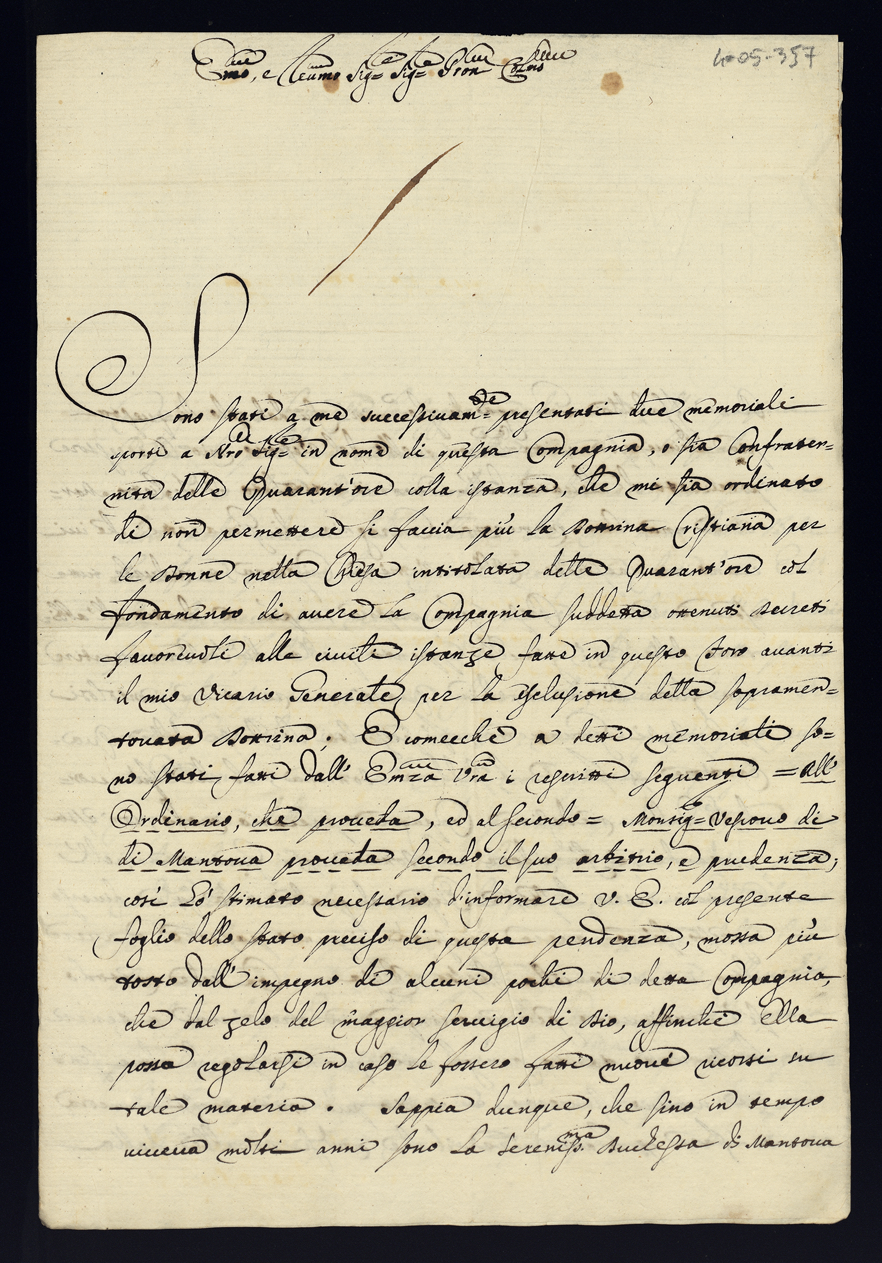 4-05-357
Emo, e Reumo Sig:re Sig:re Pron Colmo
Sono stati a me successiuam:te presentati due memoriali
sporti a Nro Sig:re in nome di questa Compagnia, o sia Confrater=
nita delle Quarant'ore colla istanza, che mi sia ordinato
di non permettere si faccia più la Dottrina Cristiana per
le Donne nella Chiesa intitolata delle Quarant'ore col
fondamento di auere la Compagnia suddetta ottenuti Decreti
fauoreuoli alle ciuili istanze fatte in questo Foro auanti
il mio Vicario Generale per la esclusione della sopramen=
touata Dottrina. E comecchè a detti memoriali so=
no stati fatti dall' Emza Vra i rescritti seguenti = All'
Ordinario, che proueda, ed al secondo = Monsig:r Vescouo di
di Mantoua proueda secondo il suo arbitrio, e prudenza;
così hò stimato necessario d'informare V. E. col presente
foglio dello stato preciso di questa pendenza, mossa più
tosto dall' impegno di alcuni pochi di detta Compagnia,
che dal zelo del maggior seruigio di Dio, affinchè ella
possa regolarsi in caso le fossero fatti nuoui ricorsi su
tale materia. Sappia dunque, che sino in tempo
uiueua molti anni sono la Sereniss:ma Duchessa di Mantoua